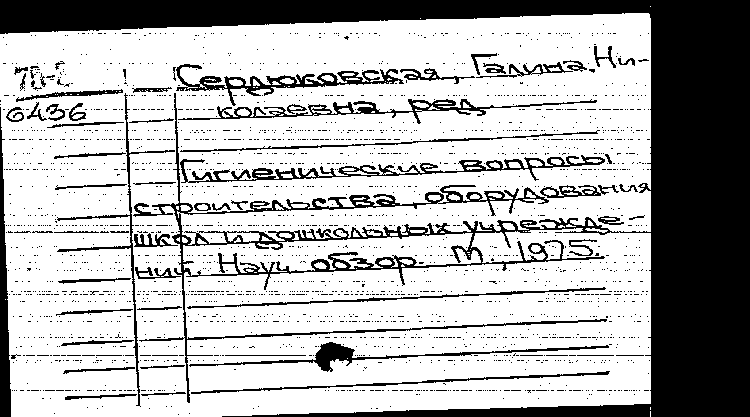 Сердюковская, Галина Ни-
6436 колаевна, ред.
Гигиенические вопросы
строительства, оборудования
школ и дошкольных учрежде-
ний. Науч. обзор. М., 1975.